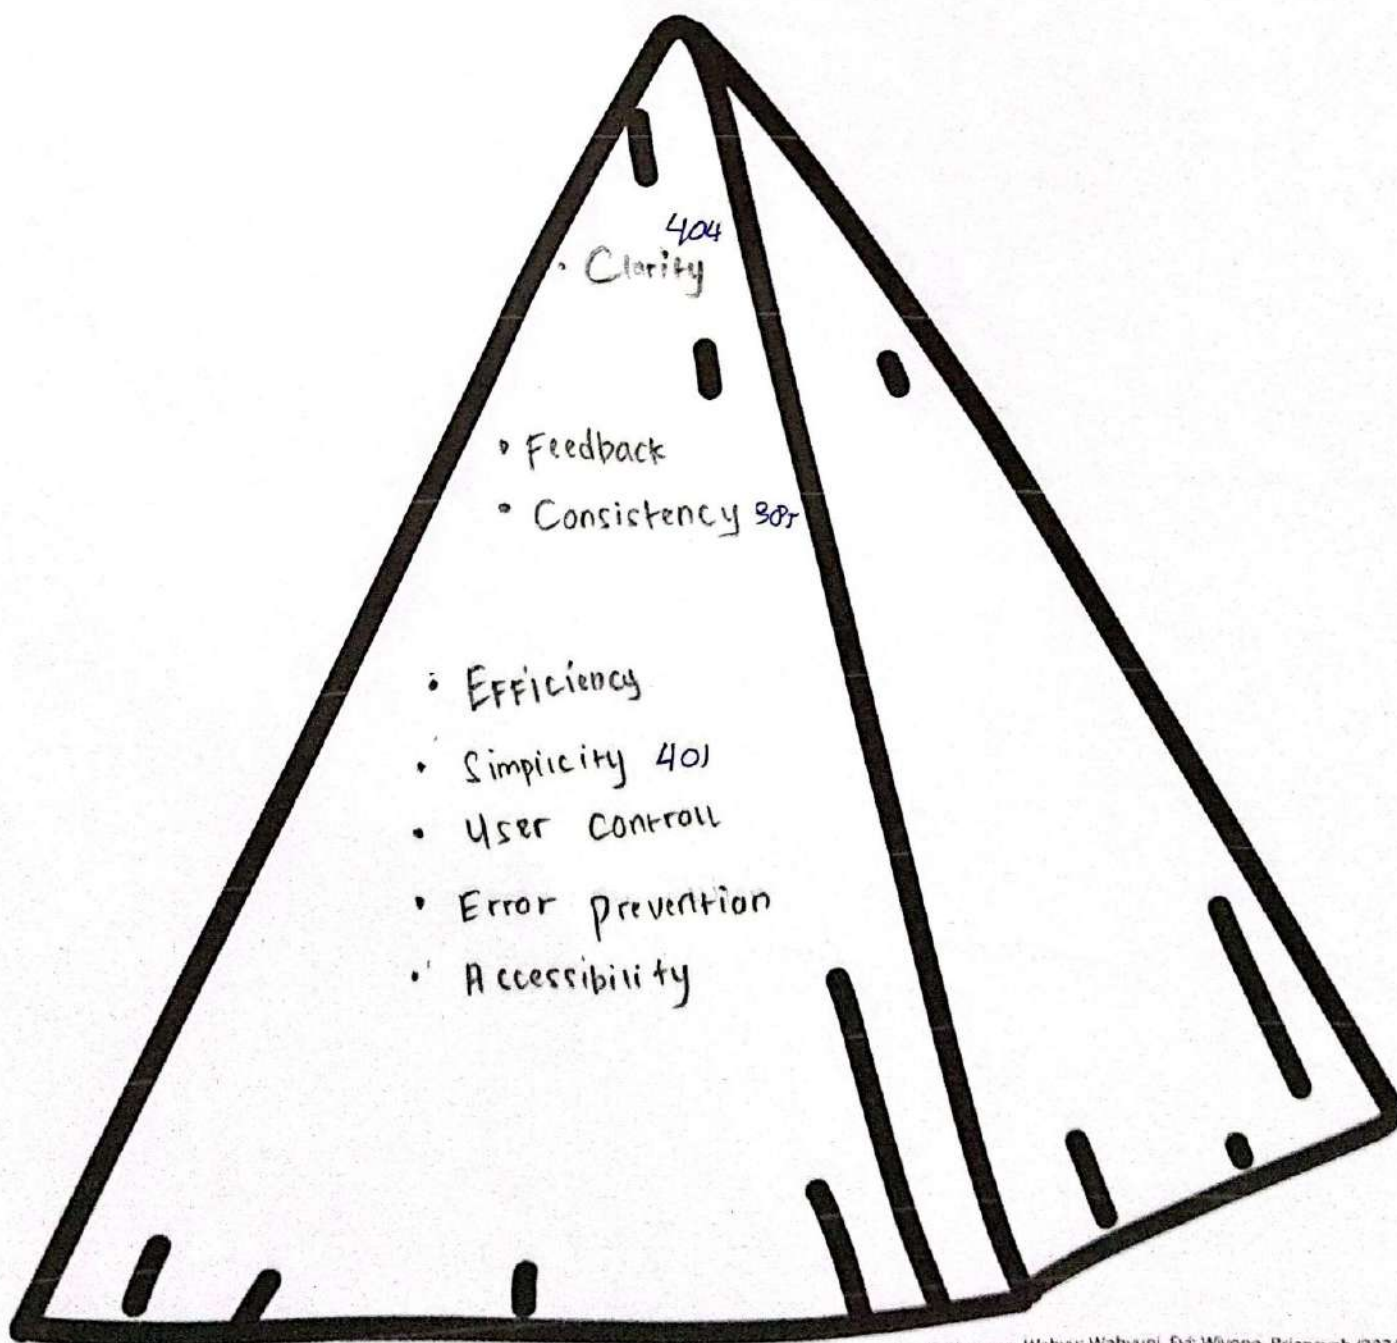 404
• Clarity
• Feedback
• Consistency 385
• Efficiency
• Simplicity 401
• User controll
• Error prevention
• Accessibility